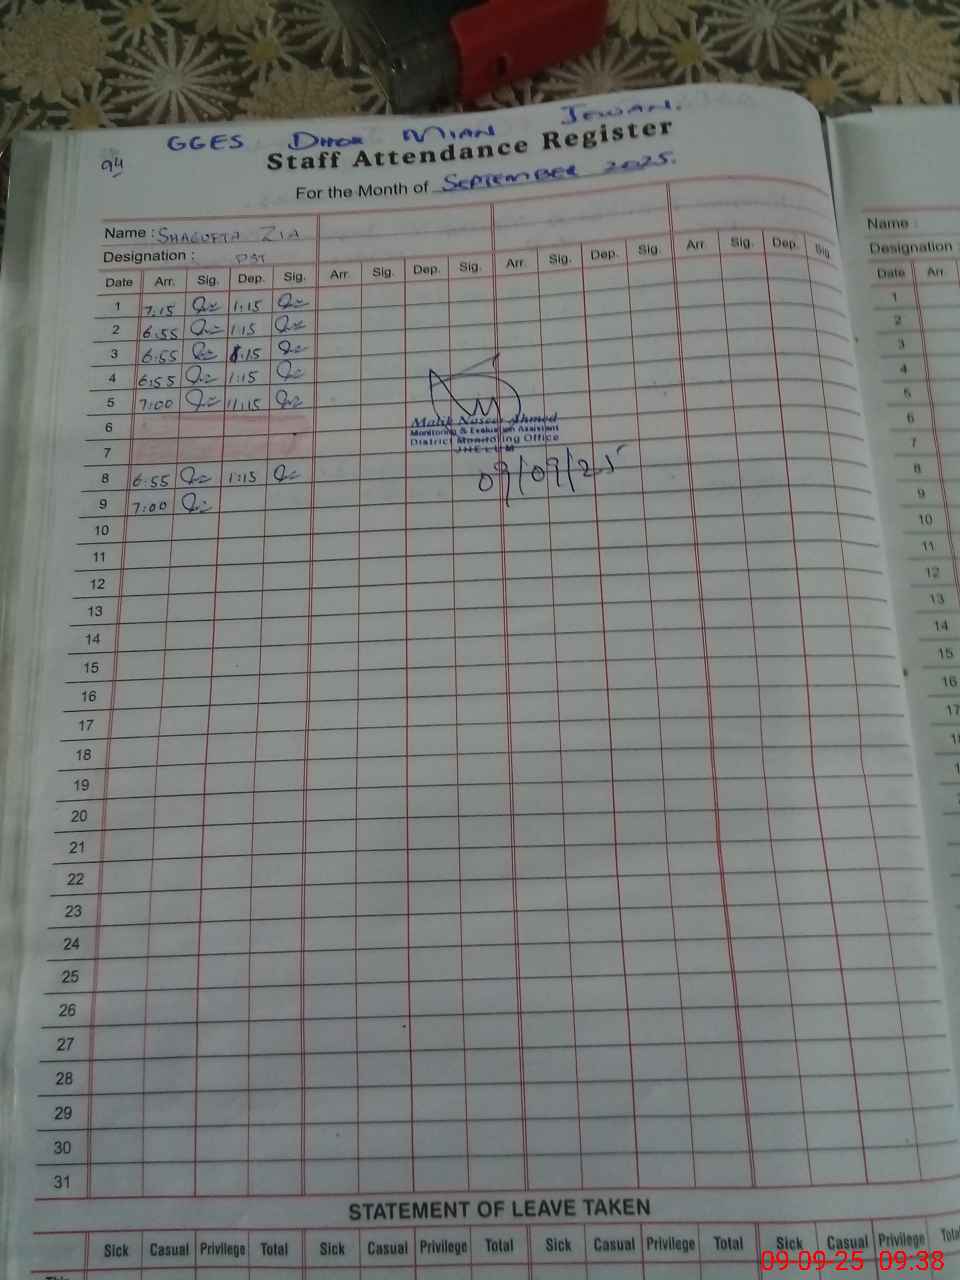 GGES DHOK MIAN JEWAN.
94
Staff Attendance Register
For the Month of SEPTEMBER 2025.
Name : SHAGUFTA ZIA
Designation : PST
Date Arr. Sig. Dep. Sig. Arr. Sig. Dep. Sig. Arr. Sig. Dep. Sig. Arr. Sig. Dep. Sig.
1 7:15 1:15
2 6:55 1:15
3 6:55 1:15
4 6:55 1:15
5 7:00 11:15
6
7
8 6:55 1:15
9 7:00
10
11
12
13
14
15
16
17
18
19
20
21
22
23
24
25
26
27
28
29
30
31
Malik Naseer Ahmed
Monitoring & Evaluation Assistant
District Monitoring Office
JHELUM
09/09/25
STATEMENT OF LEAVE TAKEN
Sick Casual Privilege Total Sick Casual Privilege Total Sick Casual Privilege Total Sick Casual Privilege Total
Name :
Designation :
Date Arr.
1
2
3
4
5
6
7
8
9
10
11
12
13
14
15
16
17
09-09-25 09:38